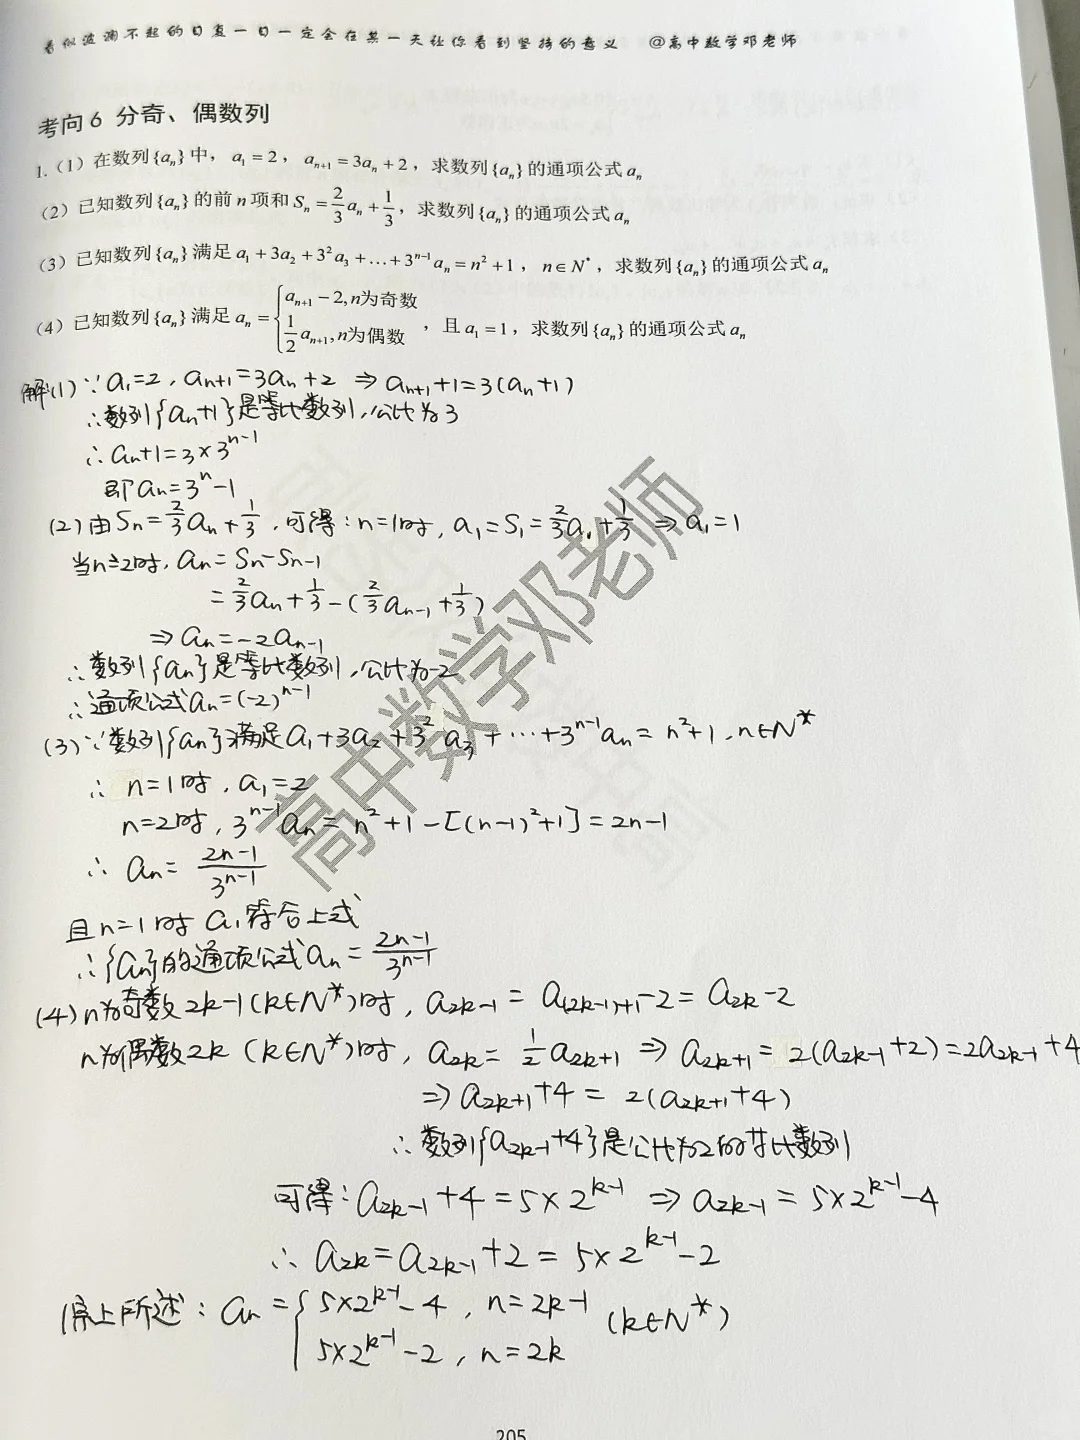 看似波澜不起的日复一日一定会在某一天让你看到坚持的意义 @高中数学邓老师
考向6 分奇、偶数列
1.（1）在数列{aₙ}中，a₁=2，aₙ₊₁=3aₙ+2，求数列{aₙ}的通项公式aₙ
（2）已知数列{aₙ}的前n项和Sₙ=2/3aₙ+1/3，求数列{aₙ}的通项公式aₙ
（3）已知数列{aₙ}满足a₁+3a₂+3²a₃+…+3ⁿ⁻¹aₙ=n²+1，n∈N*，求数列{aₙ}的通项公式aₙ
（4）已知数列{aₙ}满足aₙ={aₙ₊₁-2,n为奇数 1/2aₙ₊₁,n为偶数，且a₁=1，求数列{aₙ}的通项公式aₙ
解(1)∵a₁=2,aₙ₊₁=3aₙ+2⇒aₙ₊₁+1=3(aₙ+1)
∴数列{aₙ+1}是等比数列,公比为3
∴aₙ+1=3×3ⁿ⁻¹
即aₙ=3ⁿ-1
(2)由Sₙ=2/3aₙ+1/3,可得:n=1时,a₁=S₁=2/3a₁+1/3⇒a₁=1
当n≥2时,aₙ=Sₙ-Sₙ₋₁
=2/3aₙ+1/3-(2/3aₙ₋₁+1/3)
⇒aₙ=-2aₙ₋₁
∴数列{aₙ}是等比数列,公比为-2
∴通项公式aₙ=(-2)ⁿ⁻¹
(3)∵数列{aₙ}满足a₁+3a₂+3²a₃+…+3ⁿ⁻¹aₙ=n²+1,n∈N*
∴n=1时,a₁=2
n=2时,3ⁿ⁻¹aₙ=n²+1-[(n-1)²+1]=2n-1
∴aₙ=(2n-1)/3ⁿ⁻¹
且n=1时a₁符合上式
∴{aₙ}的通项公式aₙ=(2n-1)/3ⁿ⁻¹
(4)n为奇数2k-1(k∈N*)时,a₂ₖ₋₁=a₍₂ₖ₋₁₎₊₁-2=a₂ₖ-2
n为偶数2k(k∈N*)时,a₂ₖ=1/2a₂ₖ₊₁⇒a₂ₖ₊₁=2(a₂ₖ₋₁+2)=2a₂ₖ₋₁+4
⇒a₂ₖ₊₁+4=2(a₂ₖ₊₁+4)
∴数列{a₂ₖ₋₁+4}是公比为2的等比数列
可得:a₂ₖ₋₁+4=5×2ᵏ⁻¹⇒a₂ₖ₋₁=5×2ᵏ⁻¹-4
∴a₂ₖ=a₂ₖ₋₁+2=5×2ᵏ⁻¹-2
综上所述:aₙ={5×2ᵏ⁻¹-4,n=2k-1 (k∈N*)
5×2ᵏ⁻¹-2,n=2k
高中数学邓老师
205